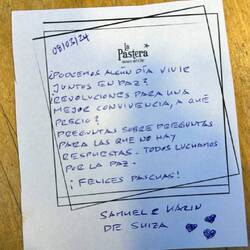 08/03/24
La Pastera
Museo del Che
¿PODREMOS ALGÚN DÍA VIVIR
JUNTOS EN PAZ?
¡REVOLUCIONES PARA UNA
MEJOR CONVIVENCIA, A QUÉ
PRECIO?
PREGUNTAS SOBRE PREGUNTAS
PARA LAS QUE NO HAY
RESPUESTAS. TODOS LUCHAMOS
POR LA PAZ.
¡FELICES PASCUAS!
SAMUEL & KARIN
DE SUIZA